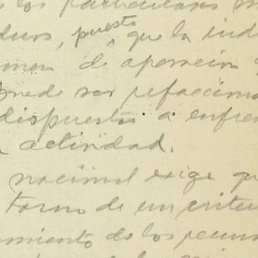 los particulares
puesto que la ind
de operación
puede ser refacciona
dispuestos a enfre
actividad.
nacional exige que
torno de un criter
miento de los recurs